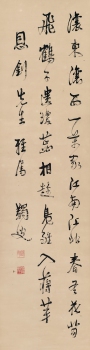 瀼東瀼西一萬家江南江北春冬花背
飛鶴子遺瓊蕊相趁鳧雛入蔣芽
恩釗先生雅屬